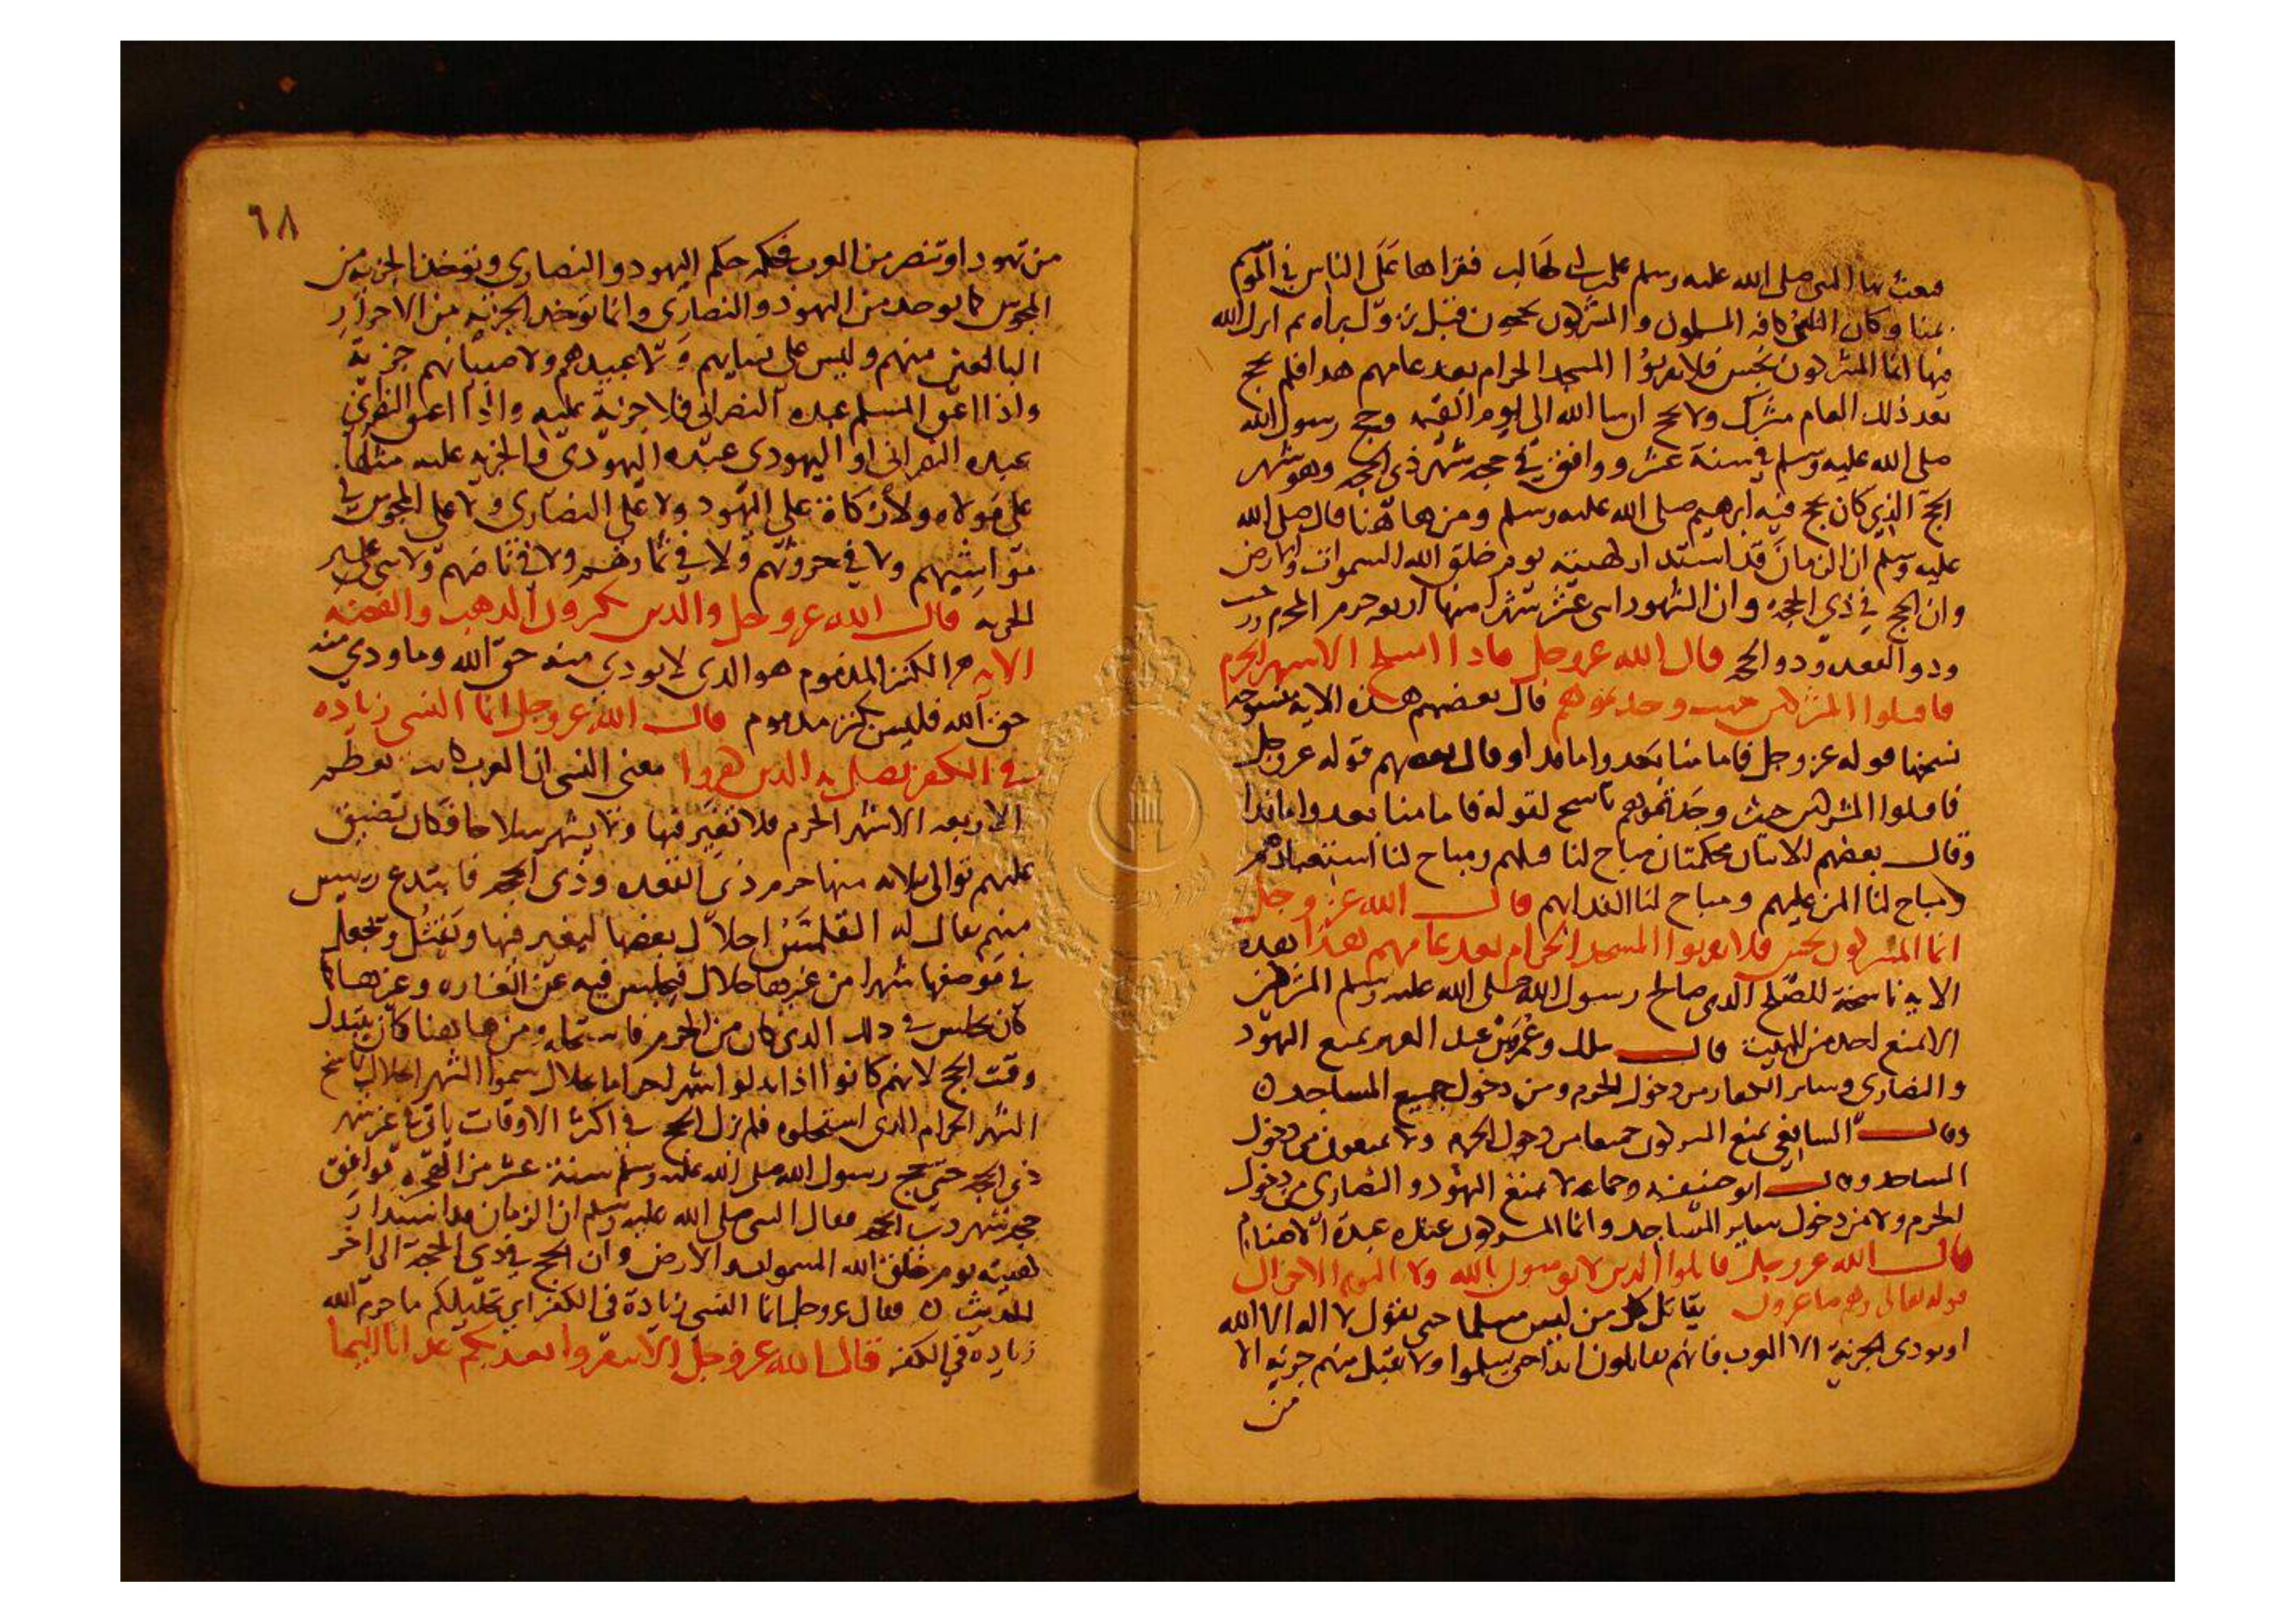 فبعث بها النبي صلى الله عليه وسلم علي بن ابي طالب فقراها على الناس في الموسم
بمنا وكان الحج كافه المسلمون والمشركون يحجون قبل نزول براه ثم انزل الله
فيها انما المشركون نجس فلا يقربوا المسجد الحرام بعد عامهم هدا فلم يحج
بعد ذلك العام مشرك ولا يحج ان سا الله الى يوم القيمه وحج رسول الله
صلى الله عليه وسلم في سنة عشر ووافق في حجه شهر ذي الحجه وهو شهر
الحج الذي كان يحج فيه ابرهيم صلى الله عليه وسلم ومن هاهنا قال صلى الله
عليه وسلم ان الزمان قد استدار كهيئته يوم خلق الله السموات والارض
وان الحج في ذي الحجه وان الشهور اسى عشر شهرا منها اربعه حرم المحرم ورجب
ودو القعده ودو الحجه قال الله عز وجل فادا انسلخ الاسهر الحرم
فاقتلوا المشركين حيث وجدتموهم قال بعضهم هذه الايه منسوخه
نسختها قوله عز وجل فاما منا بعد واما فدا وقال بعضهم قوله عز وجل
فاقتلوا المشركين حيث وجدتموهم ناسخ لقوله فاما منا بعد واما فدا
وقال بعضهم الايتان محكمتان مباح لنا قتلهم ومباح لنا استعبادهم
ومباح لنا المن عليهم ومباح لنا الفدا بهم قال الله عز وجل
انما المشركون نجس فلا يقربوا المسجد الحرام بعد عامهم هذا هده
الايه ناسخة للصلح الذي صالح رسول الله صلى الله عليه وسلم المشركين
الا يمنع احد من البيت قال ملك وعمر بن عبد العزيز يمنع اليهود
والنصارى وساير الكفار من دخول الحرم ومن دخول جميع المساجد ه
وقال الشافعي يمنع المشركون جميعا من دخول الحرم ولا يمنعون من دخول
المساجد وقال ابو حنيفه وجماعه لا يمنع اليهود والنصارى من دخول
الحرم ولا من دخول ساير المساجد وانما المشركون عنده عبدة الاصنام
قال الله عز وجل قاتلوا الذين لا يومنون بالله ولا باليوم الاخر الى
قوله تعالى وهم صاغرون يقاتل كل من ليس مسلما حتى يقول لا اله الا الله
او يودي الجزية الا العرب فانهم يقاتلون ابدا حتى يسلموا ولا تقبل منهم جزيه الا
من
٦٨
من تهود او تنصر من العرب فحكمه حكم اليهود والنصارى وتؤخذ الجزيه من
المجوس كما توخد من اليهود والنصارى وانما توخد الجزيه من الاحرار
البالغين منهم وليس على نسايهم ولا عبيدهم ولا صبيانهم جزية
واذا اعتق المسلم عبده النصراني فلا جزية عليه واذا اعتق النصراني
عبده النصراني او اليهودي عبده اليهودي فالجزيه عليه مثلها
على مولاه ولا زكاة على اليهود ولا على النصارى ولا على المجوس في
مواشيهم ولا في حروثهم ولا في ثمارهم ولا في ناضهم ولا شي عليهم غير
الجزيه قال الله عز وجل والذين يكنزون الدهب والفضه
الايه الكنز المذموم هو الذي لا يودي منه حق الله وما ودي منه
حق الله فليس بكنز مدموم قال الله عز وجل انما النسي زياده
في الكفر يضل به الذين كفروا معنى النسي ان العرب كانت تعظم
الاربعه الاشهر الحرم فلا تغير فيها ولا يشهر سلاحا فكان تضييق
عليهم توالي ثلاثه منها حرم ذي القعده وذي الحجه فابتدع رييس
منهم يقال له القلمس احلال بعضها ليغير فيها ويقتل ويجعل
في موضعها شهرا من غيرها حلال فيجلس فيه عن الغاره وغيرها كما
كان يجلس في دلك الذي كان من الحرم ومن هاهنا كان يتبدل
وقت الحج لانهم كانوا اذا بدلوا شهرا حراما بحلال سموا الشهر الحلال باسم
الشهر الحرام الذي استحلوه فلم يزل الحج في اكثر الاوقات ياتي في غير شهر
ذي الحجه حتى حج رسول الله صلى الله عليه وسلم سنة عشر من الهجره فوافق
حجه شهر ذي الحجه فقال النبي صلى الله عليه وسلم ان الزمان قد استدار
كهيئته يوم خلق الله السموات والارض وان الحج في ذي الحجة الى اخر
الحديث ه فقال عز وجل انما النسي زيادة في الكفر اي تحليلكم ما حرم الله
زيادة في الكفر قال الله عز وجل الا تنفروا يعدبكم عدابا اليما